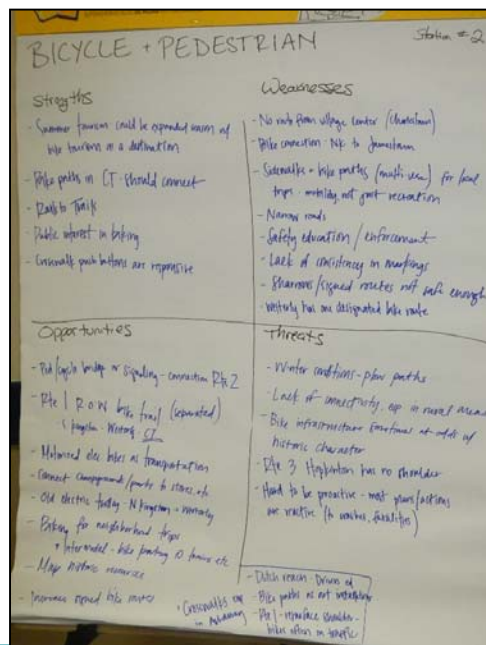 BICYCLE + PEDESTRIAN
Station #2
Stregths
- Summer tourism could be expanded
bike tourism as a destination
- Bike paths in CT - should connect
- Rails to Trails
- Public interest in biking
- Crosswalk push buttons are responsive
Weaknesses
- No route from village center (Charlestown)
- Bike connection - NK to Jamestown
- Sidewalks + bike paths (multi-use) for local
trips - mobility not just recreation
- Narrow roads
- Safety education / enforcement
- Lack of consistency in markings
- Sharrows/signed routes not safe enough
- Westerly has one designated bike route
Opportunities
- Ped/cycle bridge or signaling - connection Rte 2
- Rte 1 ROW bike trail (separated)
Kingston - Westerly CT
- Motorized elec bikes as transportation
- Connect campgrounds/parks to stores, etc.
- Old electric trolley - N Kingstown - Westerly
- Biking for neighborhood trips
+ Intermodal - bike parking @ trains etc
- Map historic resources
- Increase signed bike routes
+ Crosswalks
in
Threats
- Winter conditions - plow paths
- Lack of connectivity, esp in rural areas
- Bike infrastructure sometimes at odds w/
historic character
- Rte 3 Hopkinton has no shoulder
- Hard to be proactive - most plans/actions
are reactive (to crashes, fatalities)
- Dutch reach - Drivers ed
- Bike paths as not
- Rte 1 - resurface shoulder -
bikes often in traffic